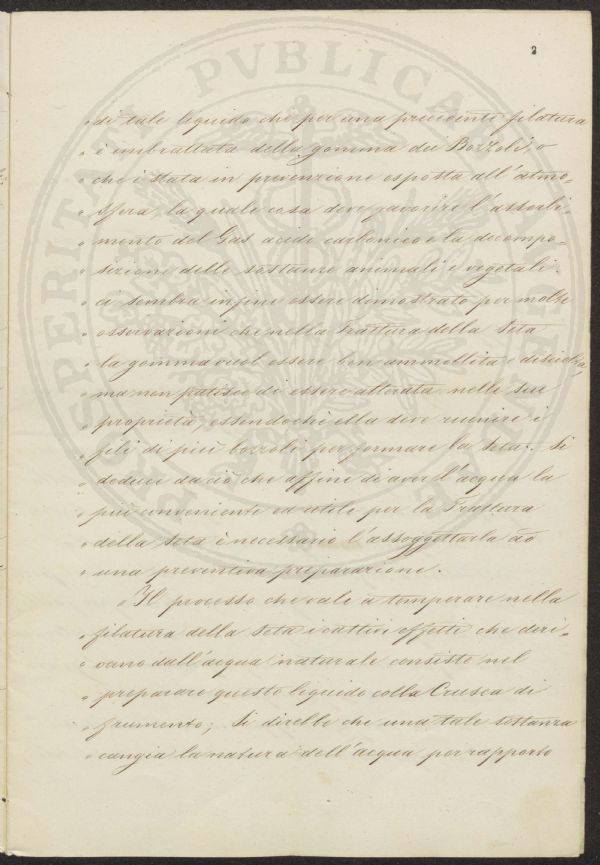 2
„ di tale liquido che per una precedente filatura
„ è imbrattata della gomma dei Bozzoli, o
„ che è stata in prevenzione esposta all'atmo=
„ sfera, la quale cosa deve favorire l'assorbi=
„ mento del Gas acido carbonico e la decompo=
„ sizione delle sostanze animali e vegetali.
„ di sembra infine essere dimostrato per molte
„ osservazione che nella Trattura della Seta
„ la gomma vuol essere ben ammollita e disciolta,
„ ma non patisce di essere alterata nelle sue
„ proprietà, essendochè ella deve riunire i
„ fili di più bozzoli per formare la Seta. Si
„ deduce da ciò che affine di aver l'acqua la
„ più conveniente ed utile per la Trattura
„ della Seta è necessario l'assoggettarla ad
„ una preventiva preparazione.
„ Il processo che vale a temperare nella
„ filatura della Seta i cattivi effetti che deri=
„ vano dall'acqua naturale consiste nel
„ preparare questo liquido colla Crusca di
„ frumento; Si direbbe che una tale sostanza
„ cangia la natura dell'acqua per rapporto
PROSPERITATI PVBLICAE AVGENDAE